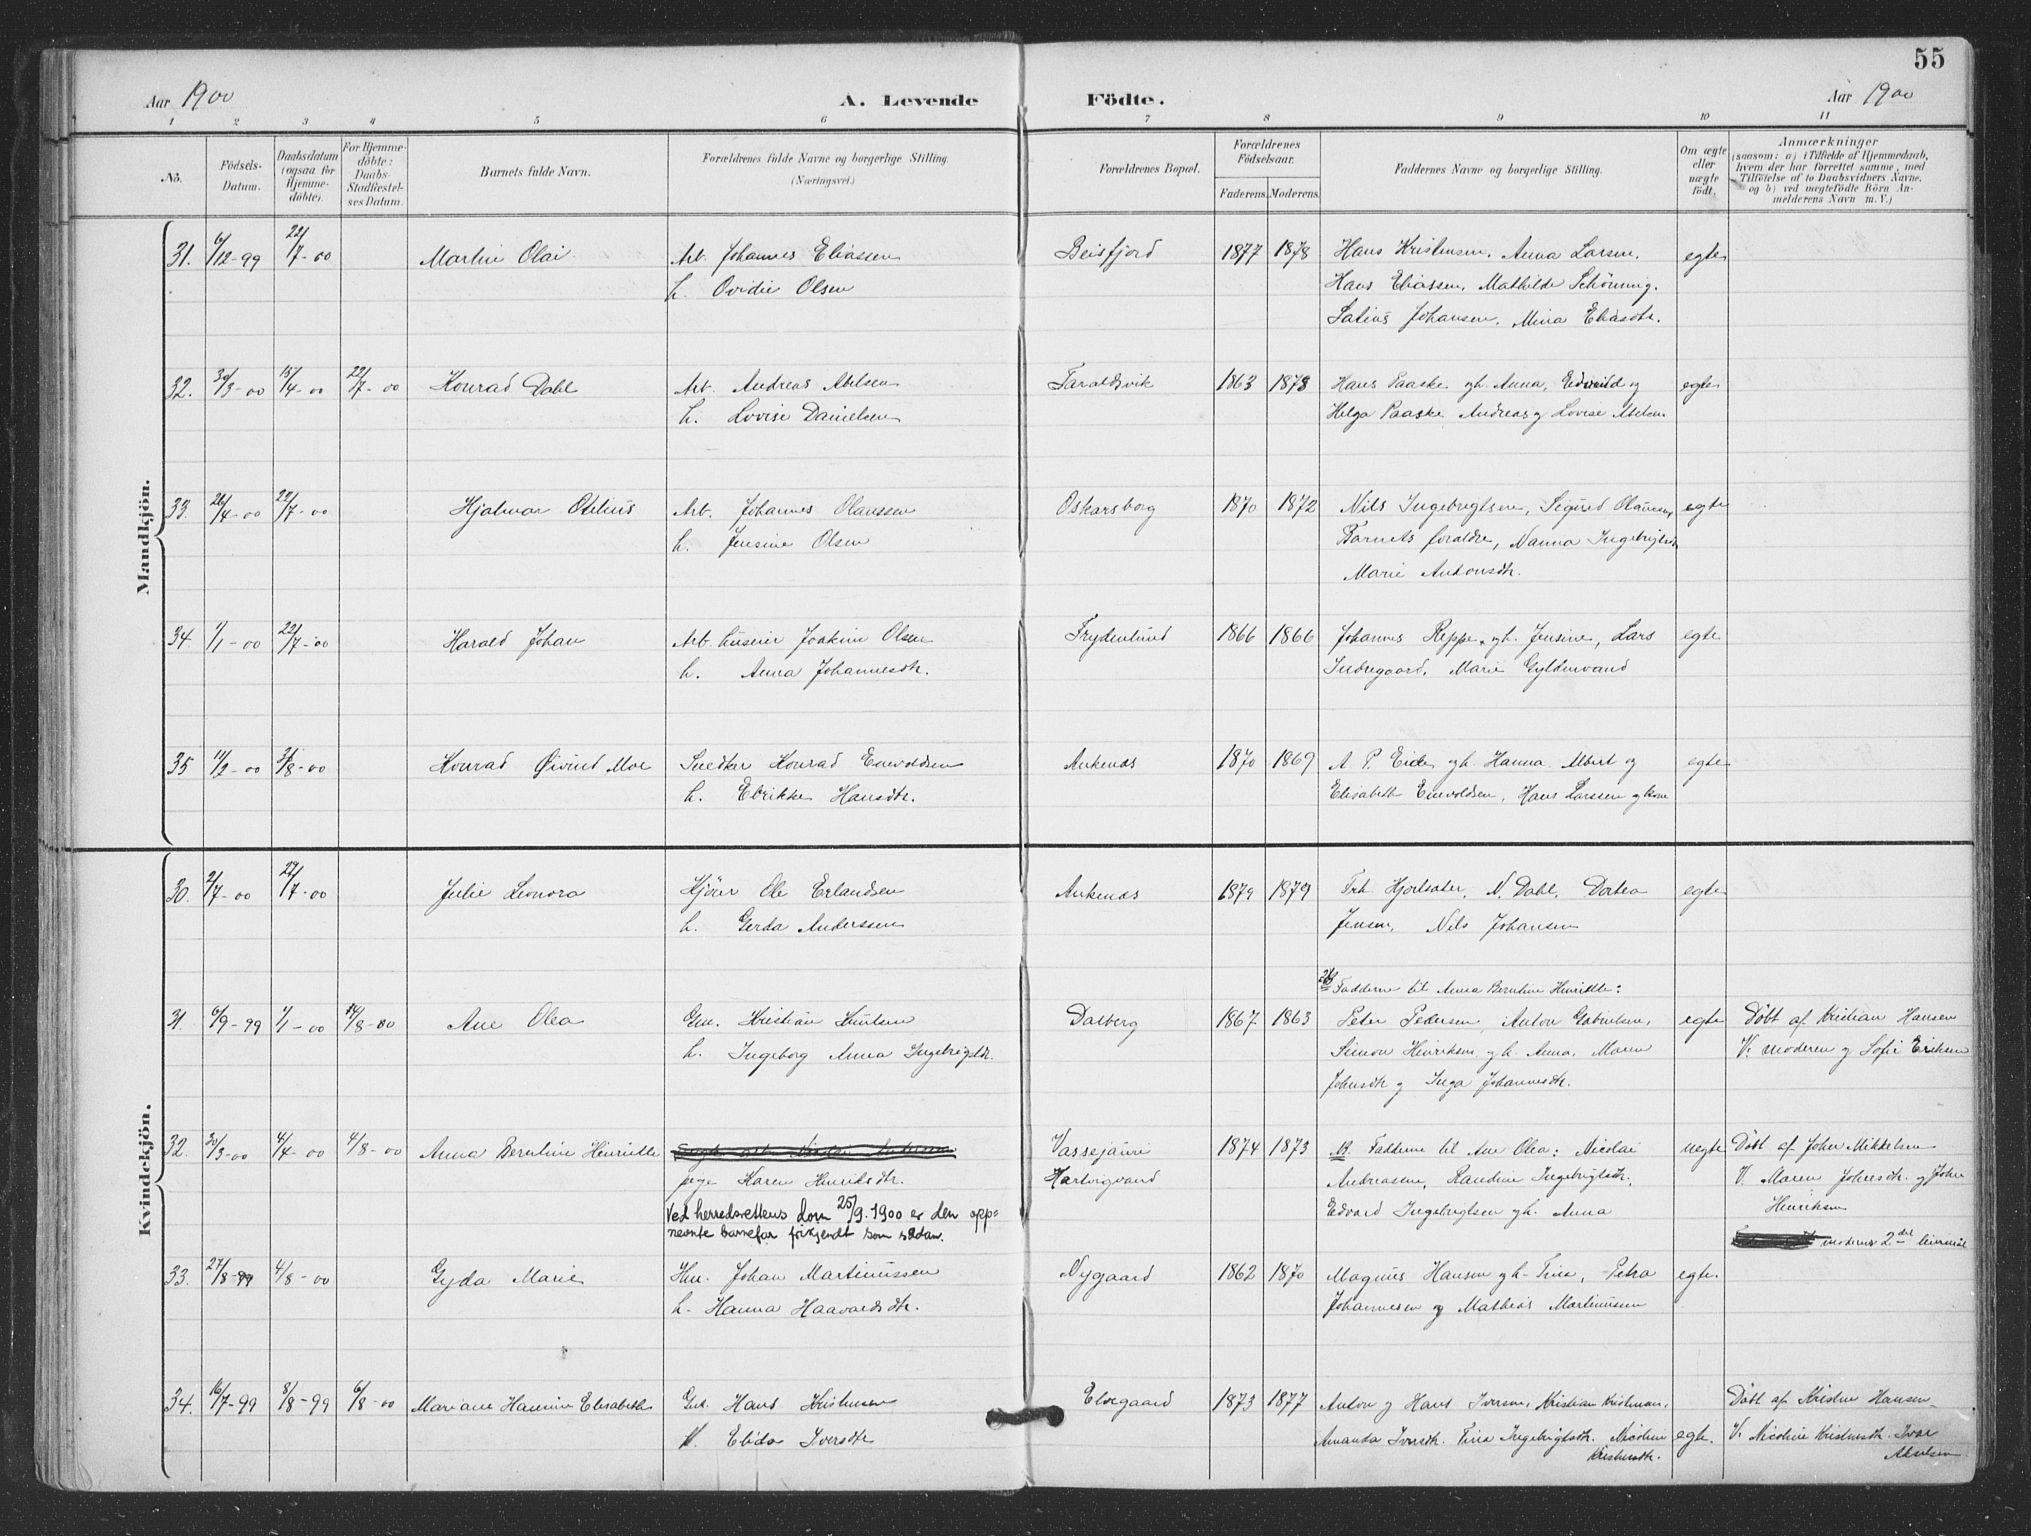 55
Aar 1900 A. Levende Födte. Aar 1900
1 2 3 4 5 6 7 8 9 10 11
No. Födsels-Datum. Daabsdatum (ogsaa for Hjemmedöbte). For Hjemmedöbte: Daabs-Stadfæstelses Datum. Barnets fulde Navn. Forældrenes fulde Navne og borgerlige Stilling. (Næringsvei.) Forældrenes Bopæl. Forældrenes Födselsaar. Faderens. Moderens. Faddernes Navne og borgerlige Stilling. Om ægte eller uægte födt. Anmærkninger (saasom: a) i Tilfælde af Hjemmedaab, hvem der har forrettet samme, med Tilföielse af to Daabsvidners Navne, og b) ved uægtefödte Börn Anmelderens Navn m. V.)
Mandkjön.
31. 6/12-99 22/7-00 Martin Olai Arb. Johannes Eliassen Beisfjord 1877 1878 Hans Kristensen, Anna Larsen, egte
h. Ovidie Olsen Hans Eliassen, Mathilde Schönning,
Johansen, Mina Eliasdtr.
32. 30/3-00 15/4-00 22/7-00 Konrad Dahl Arb. Andreas Abelsen Taraldsvik 1863 1878 Hans Paaske og h. Anna, og egte
h. Lovise Danielsen Helga Paaske, Andreas og Lovise Abelsen
33. 26/4-00 22/7-00 Hjalmar Otelius Arb. Johannes Olaussen Oskarsborg 1870 1872 Nils Ingebrigtsen, Sigurd Olausen, egte
h. Jensine Olsen Barnets foraldre, Nanna Ingebrigtsdtr
Marie Antonsdtr.
34. 1/1-00 22/7-00 Harald Johan Arb. Joakim Olsen Frydenlund 1866 1866 Johannes Reppe og h. Jensine, Lars egte
h. Anna Johannesdtr. Indregaard, Marie Gyldenvand
35 11/2-00 3/8-00 Konrad Öivind Moe Snedker Konrad Enevoldsen Ankenes 1870 1869 A. P. Eide og h. Hanna, Albert og egte
h. Elrikke Hansdtr. Elisabeth Enevoldsen, Hans Larssen og kone
Kvindekjön.
30. 2/7-00 22/7-00 Julie Leonora Kjörer Ole Erlandsen Ankenes 1879 1879 Frk Hjortsater, N. Dahl, Dortea egte
h. Gerda Anderssen Jensen, Nils Johansen
NB Fadderne til Anna Berntine Henriette:
31. 6/9-99 1/1-00 4/8-00 Ane Olea Gm. Kristian Knutsen Dalberg 1867 1863 Peter Pedersen, Anton Gabrielsen, egte Döbt af Kristian Hansen
h. Ingeborg Anna Ingebrigtsdtr. Simon Henriksen og h. Anna, Maren V. moderen og Sofie Eriksen
Johnsdtr og Inga Johannesdtr.
32. 30/3-00 4/4-00 4/8-00 Anna Berntine Henriette Vassejaure 1874 1873 NB. Fadderne til Ane Olea: Nicolai uegte Döbt af John Mikkelsen
pige Karen Henriksdtr. Hartvigvand Andreasen, Randine Ingebrigtsdtr, V. Maren Johnsdtr. og John
Ved herredsrettens dom 25/9.1900 er den opp= Edvard Ingebrigtsen og h. Anna Henriksen
nevnte barnefar frikjendt som sådan. moderens 2det leiermål
33. 27/8-99 4/8-00 Gyda Marie Hm. Johan Martinussen Nygaard 1862 1870 Magnus Hansen og h. Trine, Petra egte.
h. Hanna Haavardsdtr. Johannesen og Mathias Martinusen
34. 16/7-99 8/8-99 6/8-00 Mariane Hansine Elisabeth Gm. Hans Kristensen Elvegaard 1873 1877 Anton og Hans Iversen, Kristian Kristensen, Döbt af Kristine Hansen
h. Elida Iversdtr Amanda Iversdtr. Trina Ingebrigtsdtr. Nicoline egte. V. Nicoline Kristensdtr. Ivar
Kristensdtr. Akselsen